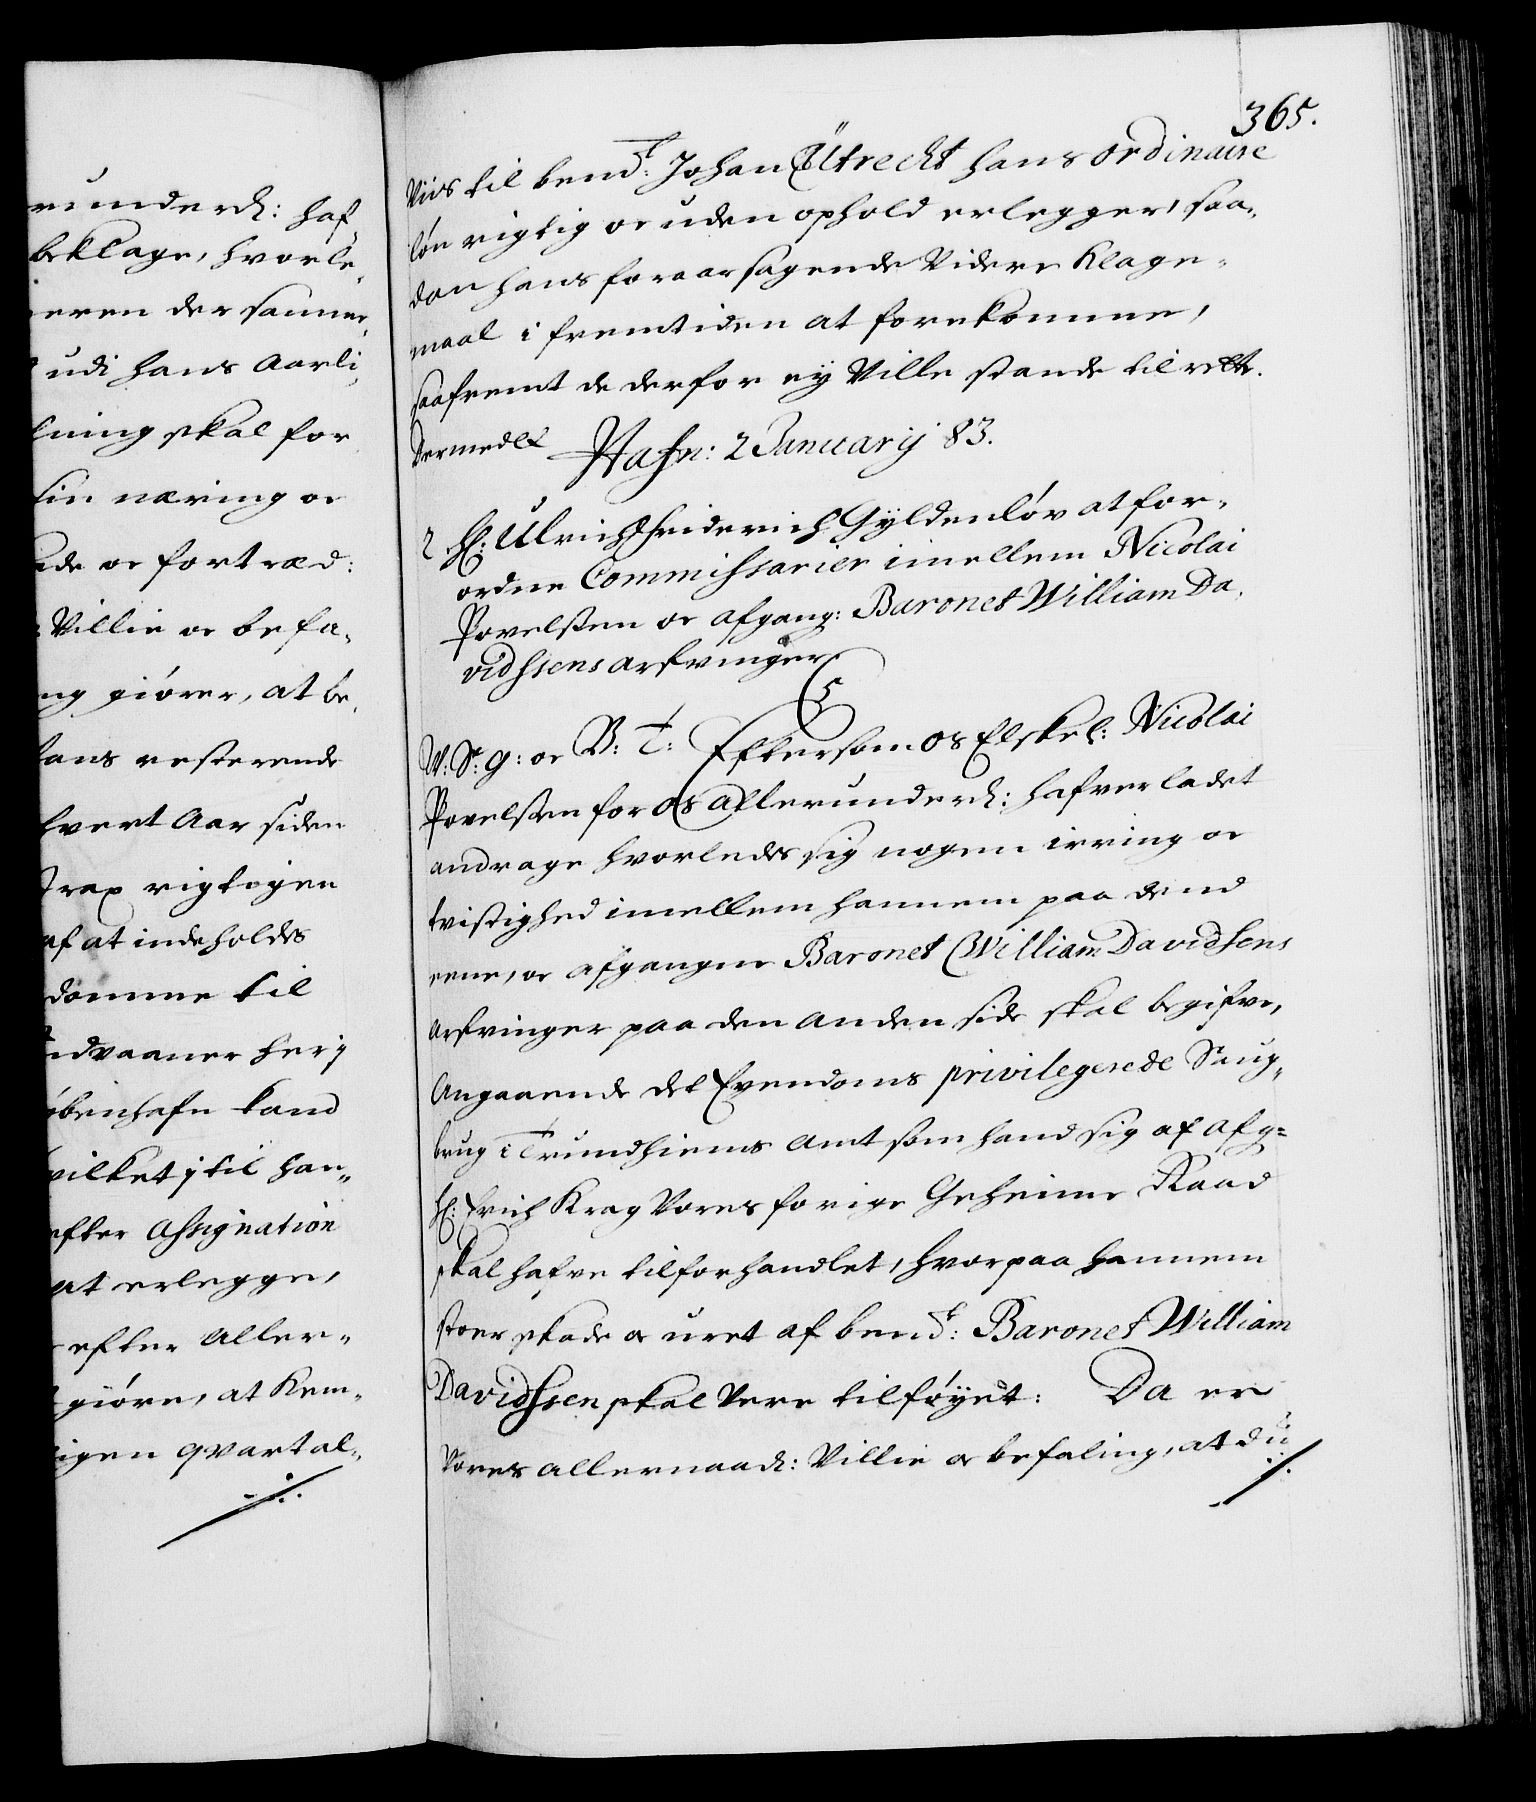 runderd: haf„
beklage, hvorle„
eren der samme„
udi hans Aarli„
ning skal for
sin næring oc
ade oc fortræd:
Villie oc befa„
ng giører, at be„
hans resterende
hvert Aar siden
Strax rigtigen
af at indeholdes
domme til
Indvaaner her j
øbenhafn kand
hvilket j til han„
efter Assignation
at erlegge,
efter Aller„
giøre, at Kem„
igen qvartal„
365.
Viis til bemd.t Johan Utrecht hans ordinaire
løn rigtig oc uden ophold erlegger, saa„
dan hans foraarsagende Videre Klage„
maal i fremtiden at forekomme,
saafremt de derfor ej Ville stande til rette.
Dermed &c Hafn: 2 Januarij 83.
2 Hr: Ulrich Friderich Gyldenløv at for„
ordne Commissarier imellem Nicolai
Povelsen oc afgang: Baronet William Da„
vidssens arfvinger
C5
V: S: g: oc B: t: Eftersom os Elskel: Nicolai
Povelsen for os allerunderd: hafver ladet
andrage hvorledes sig nogen irring oc
tvistighed imellem hannem paa dend
eene, oc afgangne Baronet William Davidsens
arfvinger paa den anden side skal begifve,
Angaaende det Eyendoms privilegerede Saug„
brug i Trundhiems Amt som hand sig af Afg=
Hr: Erich Krag Vores forige Geheime Raad
skal hafve tilforhandlet, hvorpaa hannem
stoer skade oc uret af bemd.t: Baronet William
Davidssen skal Vere tilføyet: Da er
Vores allernaad: Villie oc befaling, at du